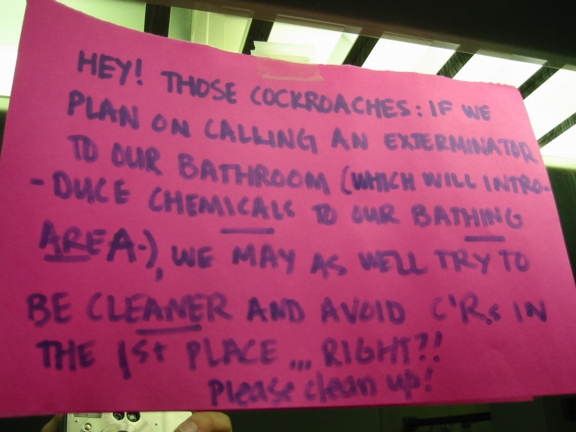 HEY! THOSE COCKROACHES: IF WE
PLAN ON CALLING AN EXTERMINATOR
TO OUR BATHROOM (WHICH WILL INTRO-
-DUCE CHEMICALS TO OUR BATHING
AREA-), WE MAY AS WELL TRY TO
BE CLEANER AND AVOID C'R.s IN
THE 1st PLACE ... RIGHT?!
Please clean up!